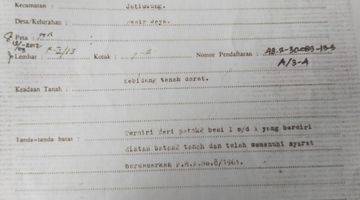 Kecamatan : Jatiuwung.
Desa/Kelurahan : Pasir Jaya.
Peta :
Lembar : Kotak : Nomor Pendaftaran :
A/3-A
Keadaan Tanah : Sebidang tanah darat.
Tanda-tanda batas : Terdiri dari patok2 besi I s/d yang berdiri
diatas batas2 tanah dan telah memenuhi syarat
berdasarkan P.M.A.No.8/1961.